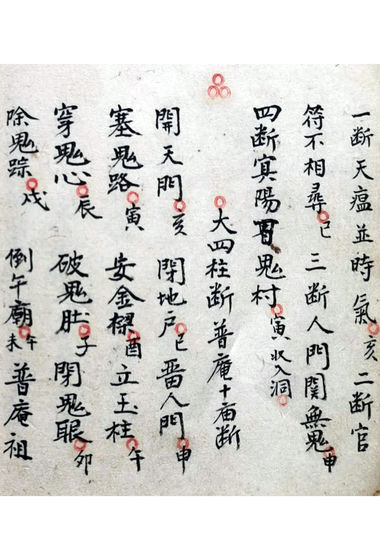 一断天瘟並時氣亥二断官
符不相尋巳三断人門関無鬼申
四断寅陽百鬼村寅收入洞
大四柱断普庵十庙断
開天門亥閉地戸巳畱人門申
塞鬼路寅安金樑酉立玉柱午
穿鬼心辰破鬼肚子閉鬼眼卯
除鬼踪戌倒午廟午未普庵祖